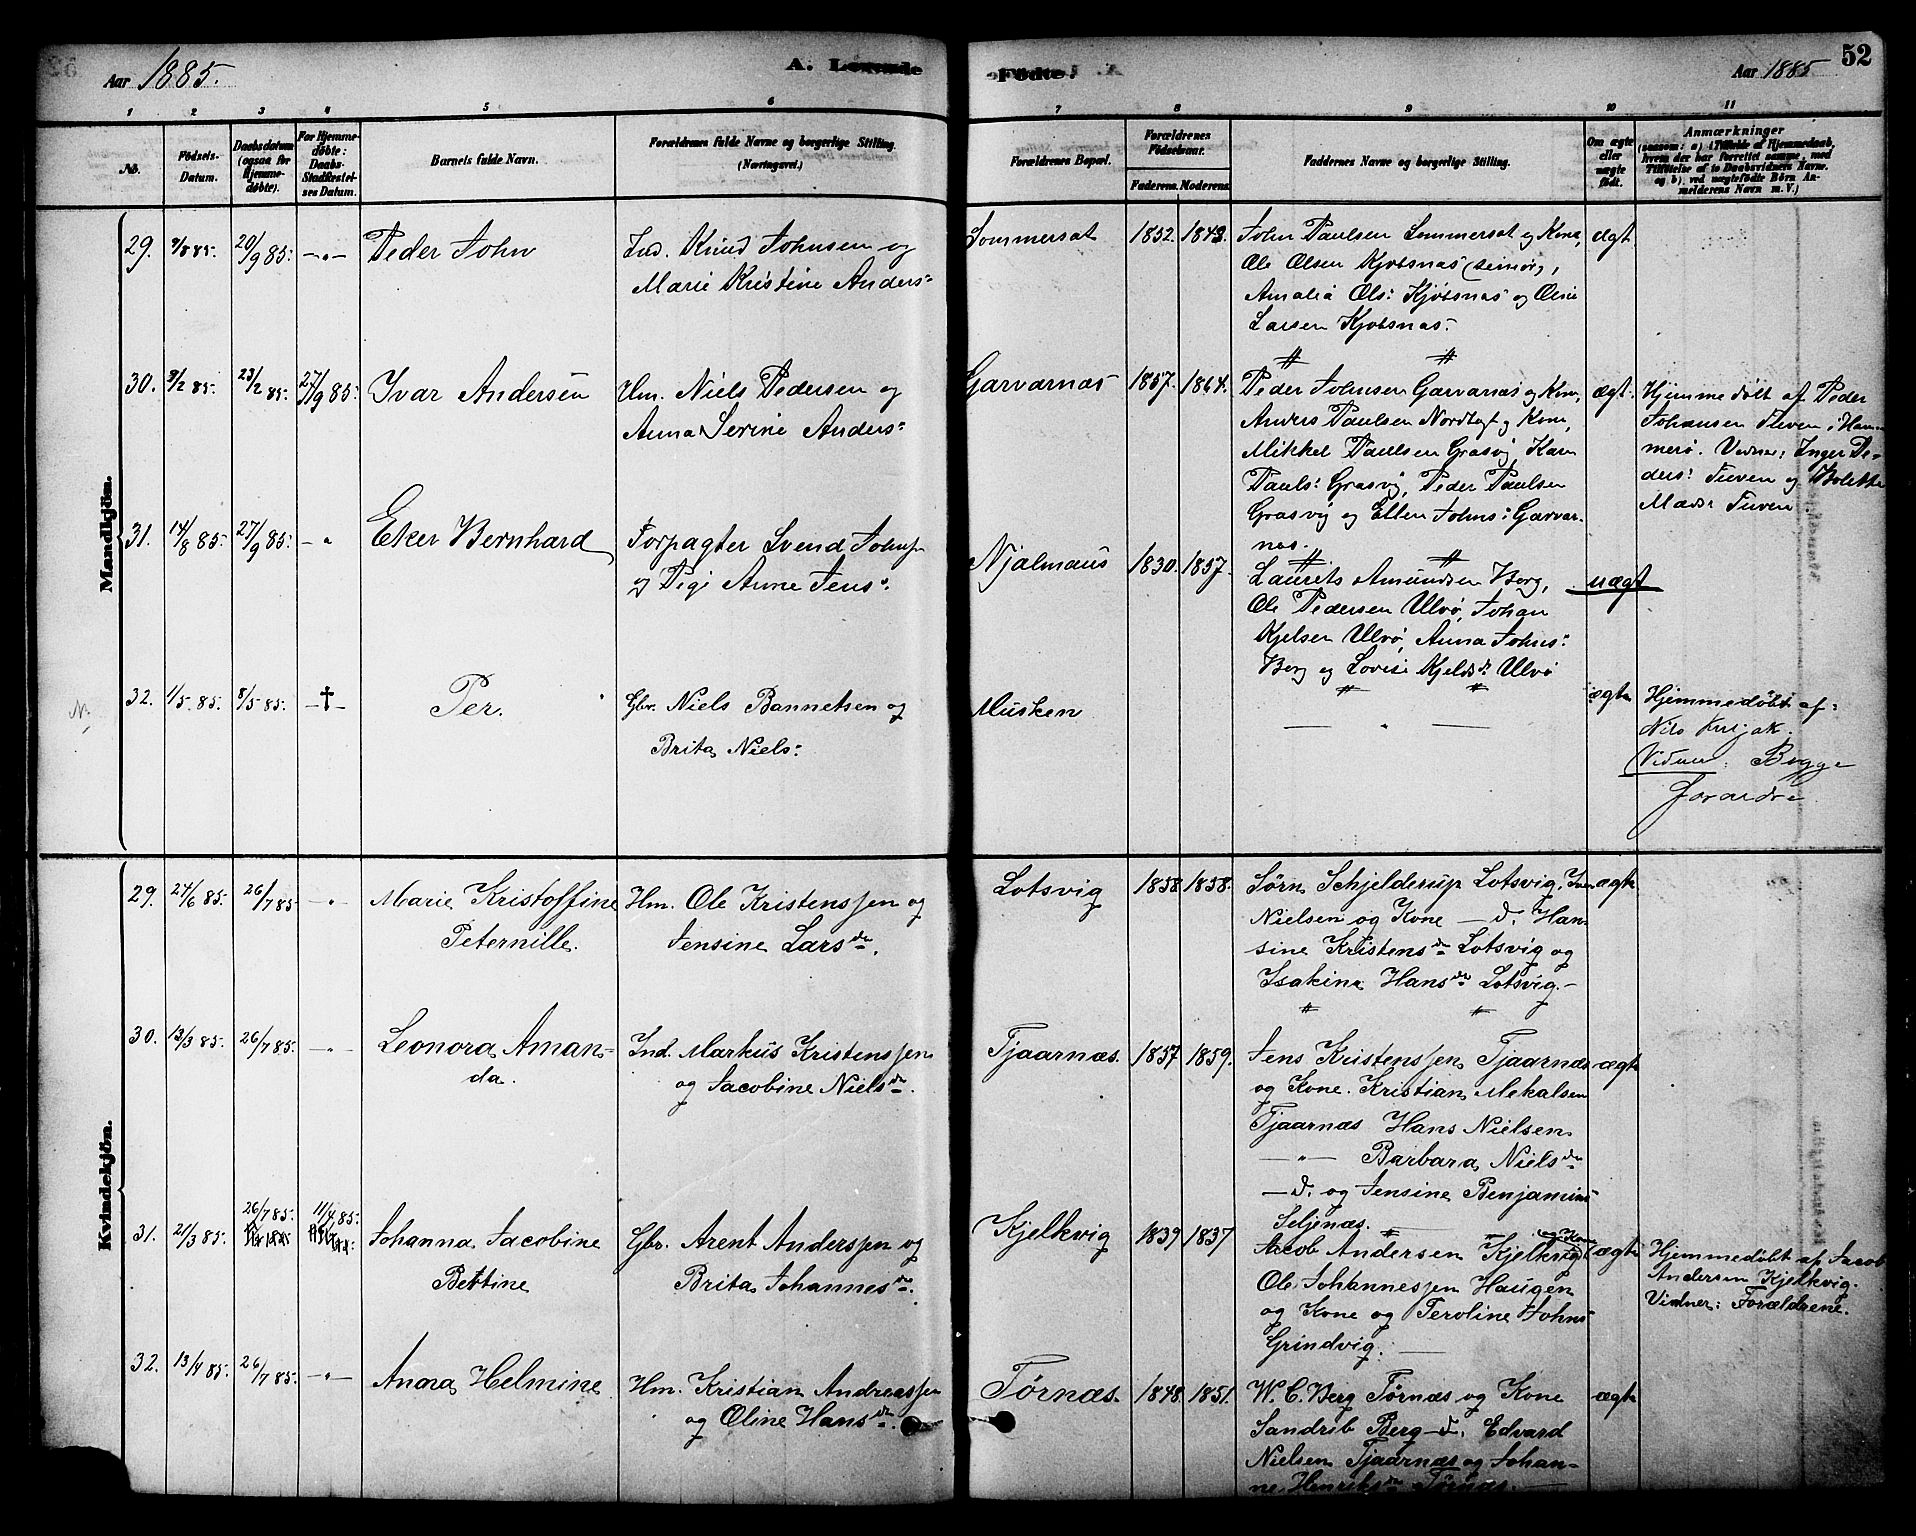 Aar 1885.
A. Levende
Fødte.
52
Aar 1885
1 2 3 4 5 6 7 8 9 10 11
No.
Fødsels-Datum.
Daabsdatum (ogsaa for Hjemmedøbte).
For Hjemmedøbte: Daabs-Stadfæstelses Datum.
Barnets fulde Navn.
Forældrenes fulde Navne og borgerlige Stilling. (Næringsvei.)
Forældrenes Bopæl.
Forældrenes Fødselsaar.
Faderens. Moderens.
Faddernes Navne og borgerlige Stilling.
Om ægte eller uægte født.
Anmærkninger
(saasom: a) i Tilfælde af Hjemmedaab, hvem der har forrettet samme, med Tilføielse af to Daabsvidners Navne. og b), ved uægtefødte Børn Anmelderens Navn m. V.)
Mandkjön.
29. 7/8 85. 20/9 85. -"- Peder John
Ind. Knud Johnsen og
Marie Kristine Anders:
Sommersat 1852. 1843.
John Paulsen Sommersat og Kone,
Ole Olsen Kjobsnas (senior),
Amalia Ols: Kjöbsnas og Oline
Larsen Kjobsnas.
ægt.
30. 8/2 85. 23/2 85. 27/9 85. Ivar Andersen
Hm. Niels Pedersen og
Anna Serine Anders:
Garvarnas 1857. 1864.
Peder Johnsen Garvarnas og Kone,
Anders Paulsen Nordbygt og Kone,
Mikkel Paulsen Grasvig, Karn
Pauls: Grasvig, Peder Paulsen
Grasvig og Ellen Johns: Garvar-
nas.
ægt.
Hjemmedøbt af Peder
Johansen Tieven i Ham-
merø. Vidner: Inger Pe-
ders: Tieven og Bolette
Mads: Tieven
31. 14/8 85. 27/9 85. - " Eker Bernhard
Forpagter Svend Johns:
og Pige Anne Jens:
Njalmaus 1830. 1857.
Laurits Amundsen Borg,
Ole Pedersen Ulvø, Johan
Kjelsen Ulvø, Anna Johns:
Borg og Lovise Kjeldsd. Ulvø
uægt
32. 1/5 85. 8/5 85. -†- Per.
Gbr. Niels Bannetsen og
Brita Niels:
Musken
— " —
ægte
Hjemmedøbt af:
Nils
Vidner: Bygge
Foraedre
Kvindekjön.
29. 24/6 85. 26/7 85 -"- Marie Kristoffine
Peternille.
Hm. Ole Kristenssen og
Jensine Larsda.
Lotsvig 1858 1858.
Sørn Schjelderup Lotsvig,
Nielsen og Kone — d. Han-
sine Kristensda Lotsvig og
Isakina Hansda Lotsvig.-
ægte
30. 13/3 85. 26/7 85. -"- Leonora Aman-
da.
Ind. Markus Kristenssen
og Jacobine Nielsda.
Tjaarnæs. 1857. 1859.
Jens Kristenssen Tjaarnæs
og Kone. Kristian Mekalsen
Tjaarnæs Hans Nielsen
—"— Barbara Nielsda
— d. og Jensine Benjamins
Seljenæs.
ægte
31. 21/3 85. 26/7 85. 11/4 85. Johanna Jacobine
Bettine
Gbr. Arent Anderssen og
Brita Johannesda.
Kjelkvig 1839 1837
Jacob Andersen Kjelkvig og Kone
Ole Johannessen Haugen
og Kone og Peroline Johns
Grindvig. —
ægte
Hjemmedøbt af Jacob
Andersen Kjelkvig.
Vidner: Forældrene.
32. 13/4 85. 26/7 85. -"- Anora Helmine
Hm. Kristian Andreassen
og Oline Hansda.
Tørnæs. 1848. 1851.
W. C. Berg Tørnæs og Kone
Sandrib Berg — d. Edvard
Nielsen Tjaarnæs og Johan-
ne Henriksda Tørnæs. —
ægte